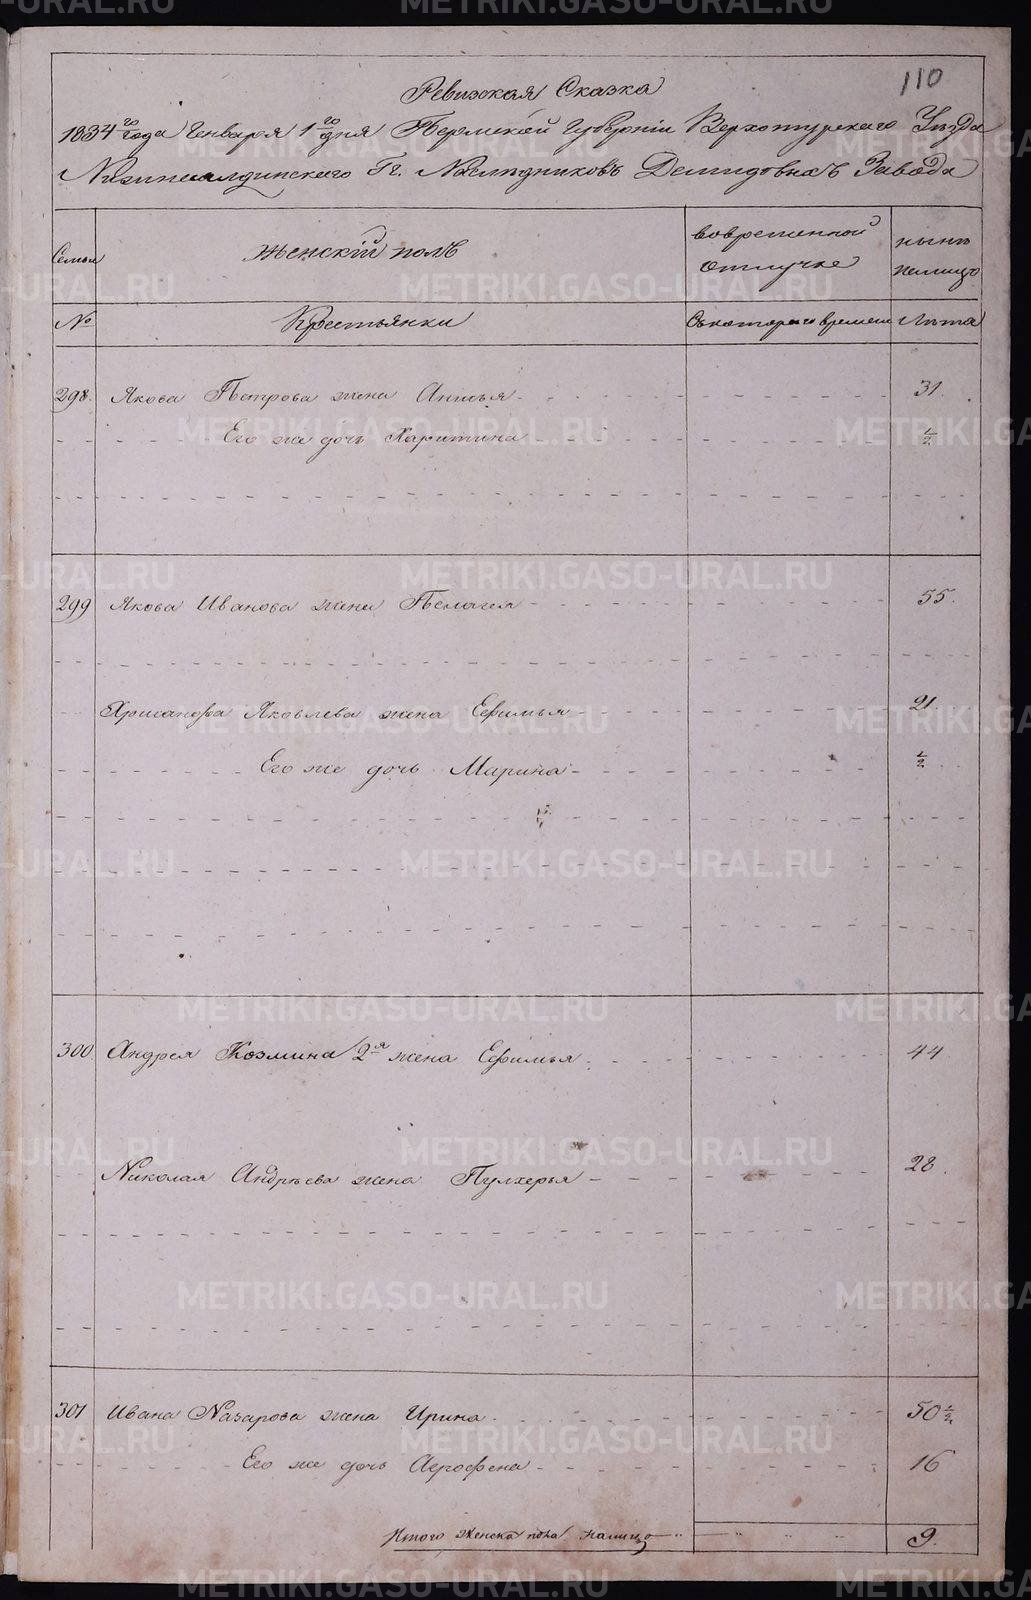 110
Ревизская Сказка
1834 го года Генваря 1 го дня Пермской Губернiи Верхотурскаго Уѣзда
Нижнесалдинскаго Гг. Наслѣдниковъ Демидовыхъ Завода
Семьи
Женскiй полъ
вовременной отлучке
нынѣ налицо
№
Крестьянки
Скотораго времени
Лѣта
298. Якова Петрова жена Анисья 31.
Его же дочь Харитина ½
299 Якова Иванова жена Пелагея 55.
Хрисанфа Яковлева жена Ефимья 21.
Его же дочь Марина ½
300 Андрея Козмина 2я жена Ефимья 44
Николая Андрѣева жена Пулхерья 28.
301 Ивана Назарова жена Ирина 50½
Его же дочь Агрофена 16
Итого женска пола налицо 9.
METRIKI.GASO-URAL.RU